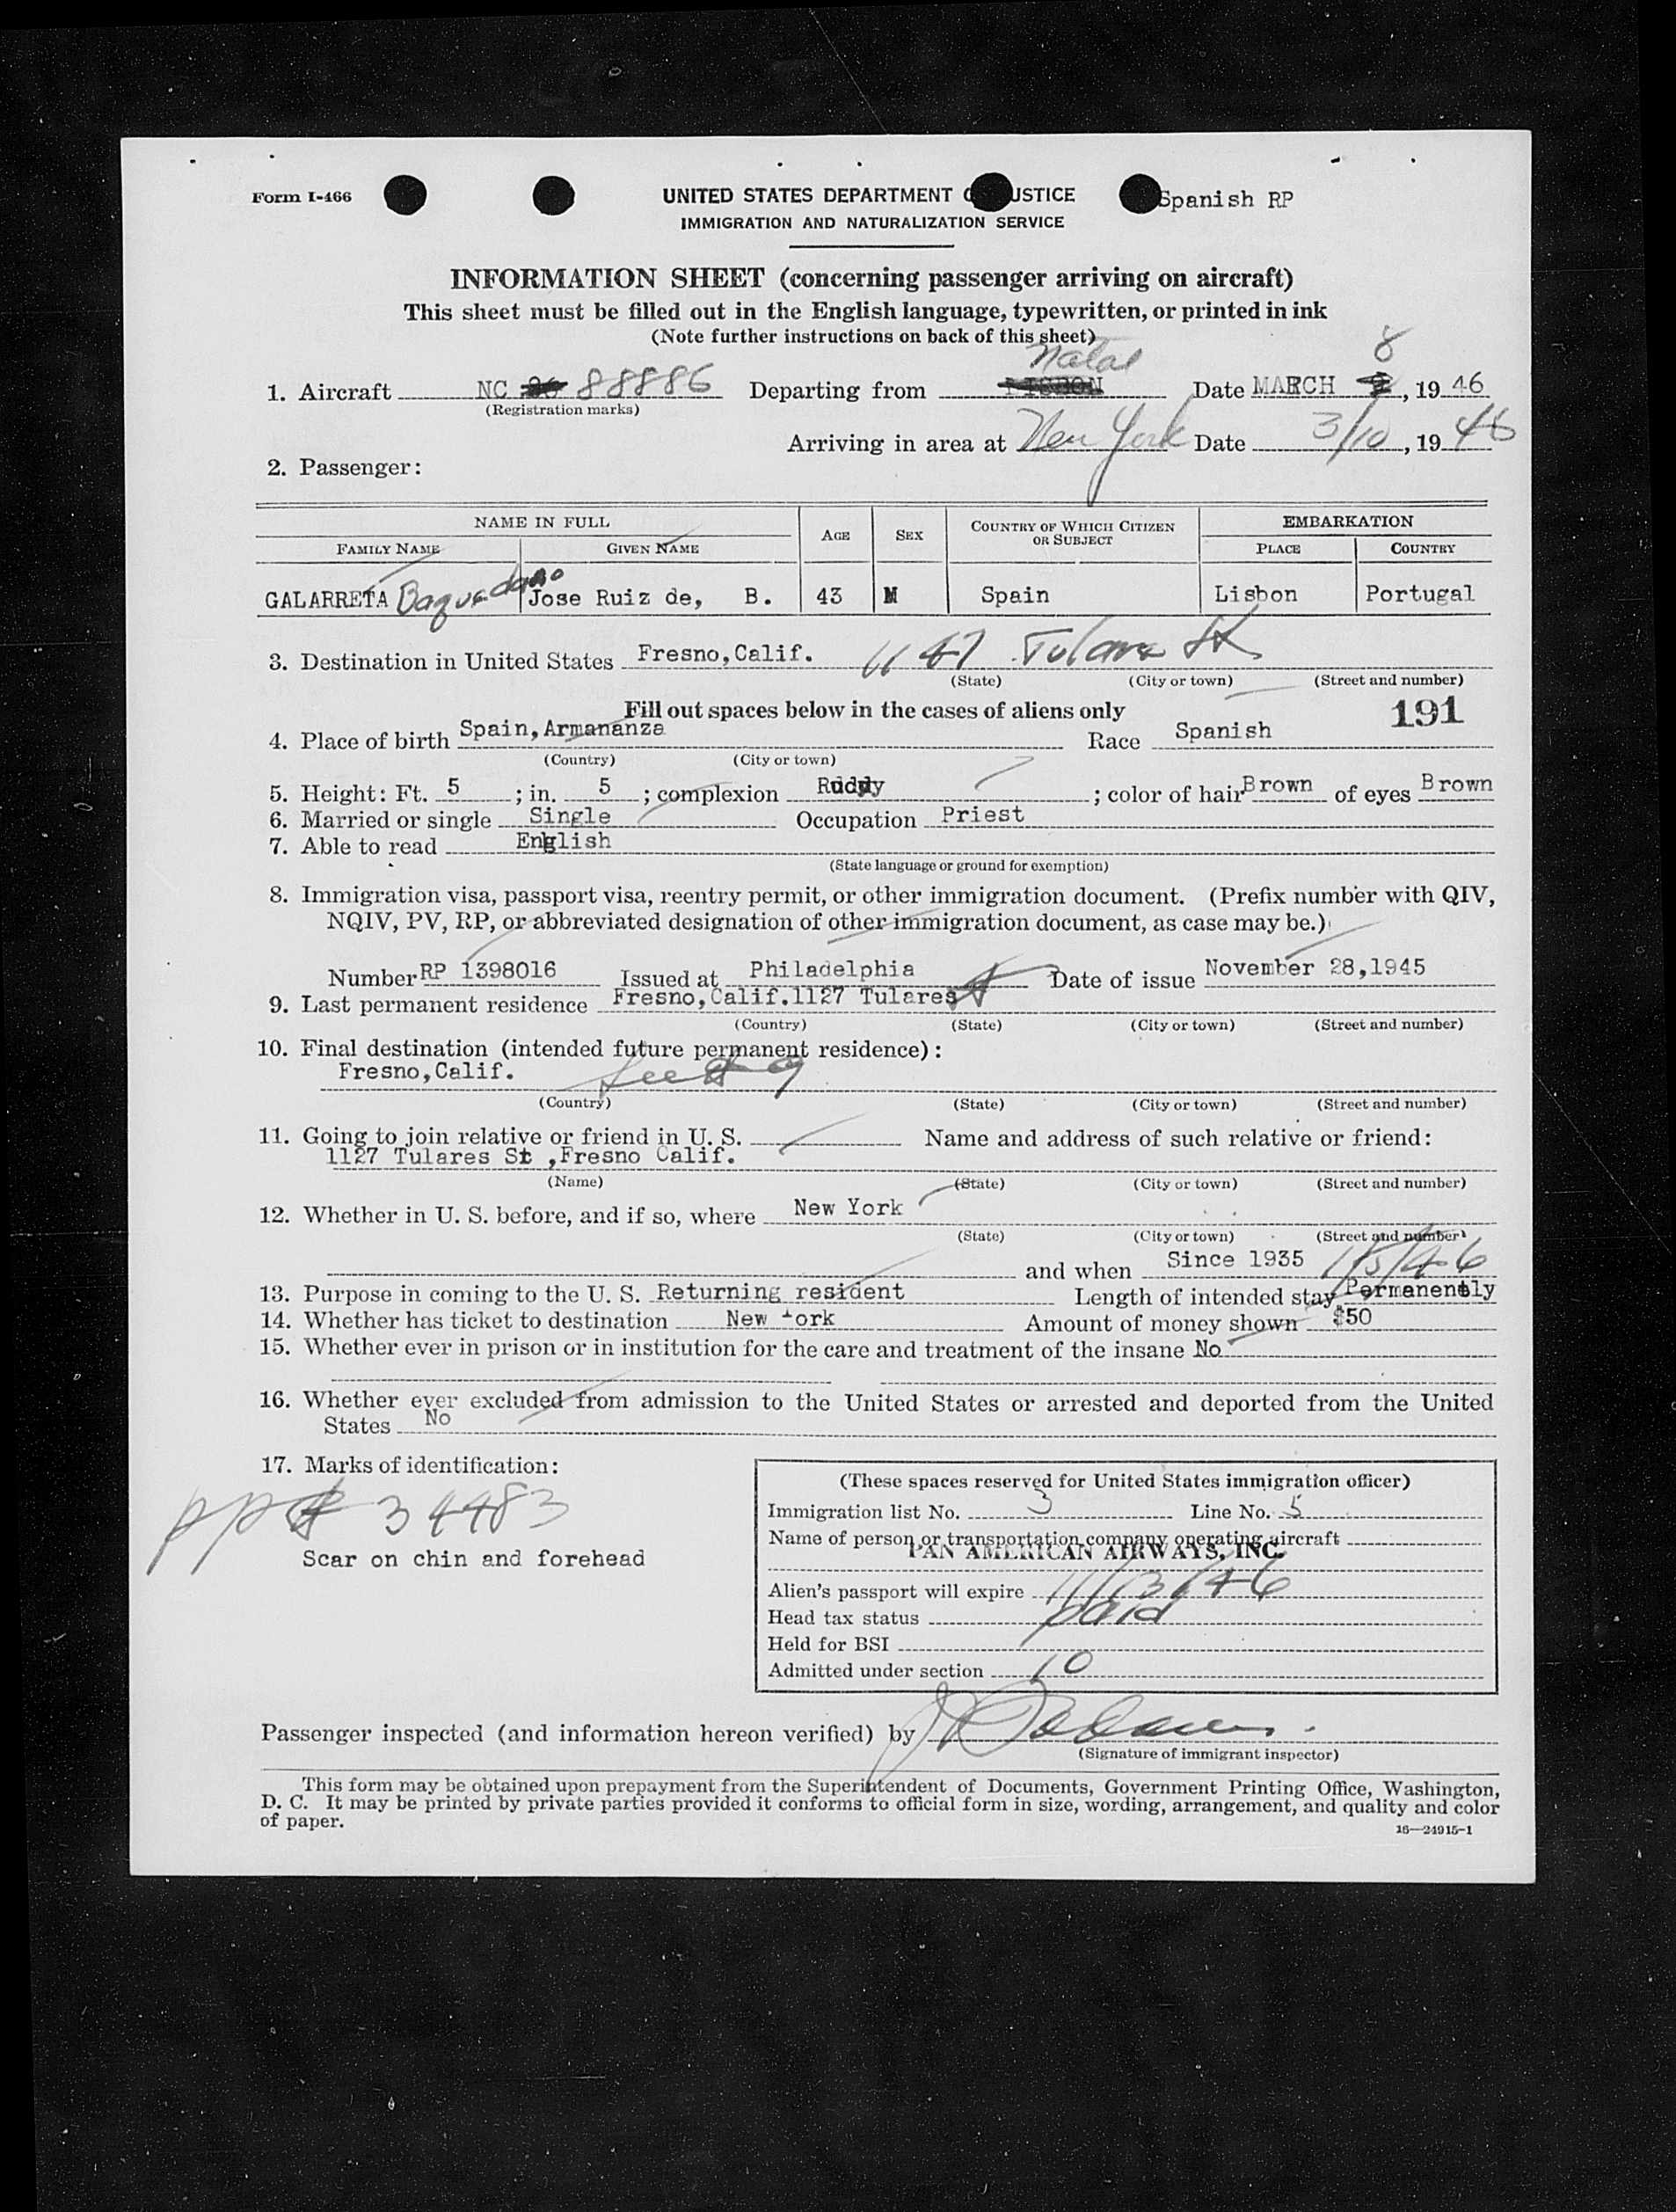 Form I-466
UNITED STATES DEPARTMENT O USTICE
Spanish RP
IMMIGRATION AND NATURALIZATION SERVICE
INFORMATION SHEET (concerning passenger arriving on aircraft)
This sheet must be filled out in the English language, typewritten, or printed in ink
(Note further instructions on back of this sheet)
Natal 8
1. Aircraft NC 88886 Departing from LISBON Date MARCH , 19 46
(Registration marks)
Arriving in area at New York Date 3/10, 19 46
2. Passenger:
NAME IN FULL AGE SEX COUNTRY OF WHICH CITIZEN OR SUBJECT EMBARKATION
FAMILY NAME GIVEN NAME PLACE COUNTRY
GALARRETA Baquedano Jose Ruiz de, B. 43 M Spain Lisbon Portugal
3. Destination in United States Fresno,Calif. 1147 Tulare St
(State) (City or town) (Street and number)
Fill out spaces below in the cases of aliens only 191
4. Place of birth Spain, Armananza Race Spanish
(Country) (City or town)
5. Height: Ft. 5 ; in. 5 ; complexion Ruddy ; color of hair Brown of eyes Brown
6. Married or single Single Occupation Priest
7. Able to read English
(State language or ground for exemption)
8. Immigration visa, passport visa, reentry permit, or other immigration document. (Prefix number with QIV,
NQIV, PV, RP, or abbreviated designation of other immigration document, as case may be.)
Number RP 1398016 Issued at Philadelphia Date of issue November 28,1945
9. Last permanent residence Fresno,Calif.1127 Tulares St
(Country) (State) (City or town) (Street and number)
10. Final destination (intended future permanent residence):
Fresno,Calif. See # 9
(Country) (State) (City or town) (Street and number)
11. Going to join relative or friend in U. S. Name and address of such relative or friend:
1127 Tulares St ,Fresno Calif.
(Name) (State) (City or town) (Street and number)
12. Whether in U. S. before, and if so, where New York
(State) (City or town) (Street and number)
and when Since 1935 1/5/46
13. Purpose in coming to the U. S. Returning resident Length of intended stay Permanently
14. Whether has ticket to destination New York Amount of money shown $50
15. Whether ever in prison or in institution for the care and treatment of the insane No
16. Whether ever excluded from admission to the United States or arrested and deported from the United
States No
17. Marks of identification:
pp# 34483
Scar on chin and forehead
(These spaces reserved for United States immigration officer)
Immigration list No. 3 Line No. 5
Name of person or transportation company operating aircraft
PAN AMERICAN AIRWAYS, INC.
Alien's passport will expire 11/13/46
Head tax status paid
Held for BSI
Admitted under section 10
Passenger inspected (and information hereon verified) by
(Signature of immigrant inspector)
This form may be obtained upon prepayment from the Superintendent of Documents, Government Printing Office, Washington,
D. C. It may be printed by private parties provided it conforms to official form in size, wording, arrangement, and quality and color
of paper.
16—24915-1